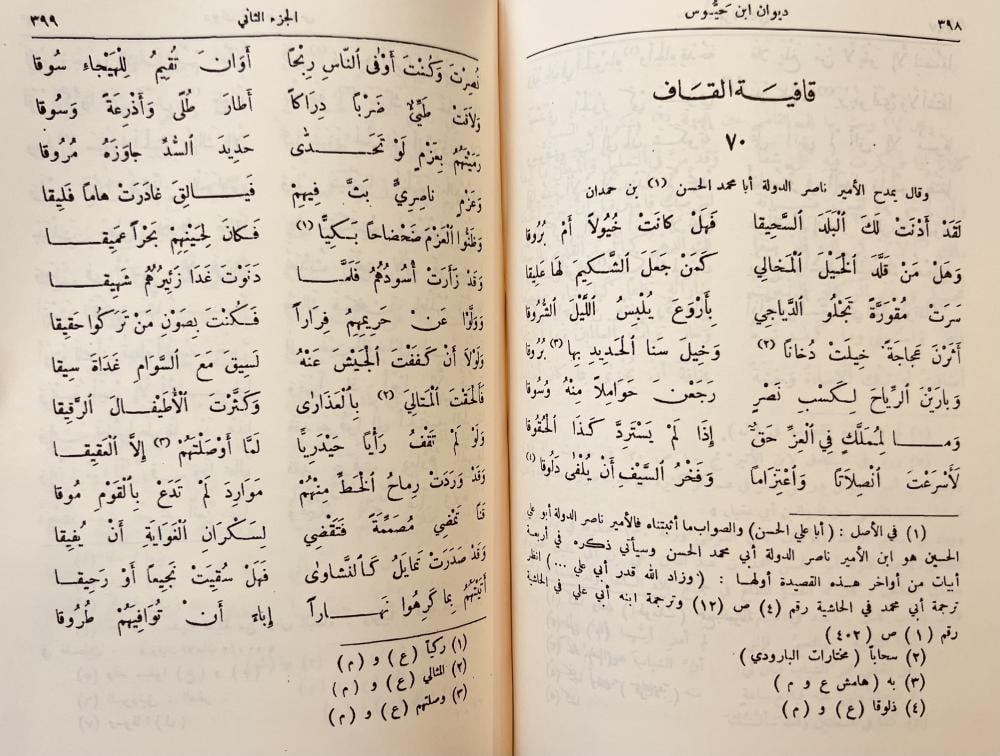 ديوان ابن حيّوس ٣٩٨
قافية القاف
٧٠
وقال يمدح الأمير ناصر الدولة أبا محمد الحسن (١) بن حمدان
لَقَدْ أَدْنَتْ لَكَ ٱلْبَلَدَ ٱلسَّحِيقا فَهَلْ كانَتْ خُيُولاً أَمْ بُرُوقا
وَهَلْ مَنْ قَلَّدَ ٱلْخَيْلَ ٱلْمَخالي كَمَنْ جَعَلَ ٱلشَّكِيمَ لَها عَلِيقا
سَرَتْ مُقْوَرَّةً تَجْلُو ٱلدَّياجي بِأَرْوَعَ يُلْبِسُ ٱللَّيْلَ ٱلشُّرُوقا
أَثَرْنَ عَجاجَةً خِيلَتْ دُخاناً (٢) وَخِيلَ سَنا ٱلْحَدِيدِ بِها (٣) بُرُوقا
وَبارَيْنَ ٱلرِّياحَ لِكَسْبِ نَصْرٍ رَجَعْنَ حَوامِلاً مِنْهُ وُسُوقا
وَما لِمُمَلَّكٍ فِي ٱلْعِزِّ حَقٌّ إِذَا لَمْ يَسْتَرِدَّ كَذَا ٱلْحُقُوقا
لَأَسْرَعْتَ ٱنْصِلاتاً وَٱعْتِزاماً وَفَخْرُ ٱلسَّيْفِ أَنْ يُلْفٰى دَلُوقا (٤)
(١) في الأصل : (أبا علي الحسن) والصواب ما أثبتناه فالأمير ناصر الدولة أبو علي
الحسين هو ابن الأمير ناصر الدولة أبي محمد الحسن وسيأتي ذكره في أربعة
أبيات من أواخر هذه القصيدة أولها : (وزاد الله قدر أبي علي ...) انظر
ترجمة أبي محمد في الحاشية رقم (٤) ص (١٢) وترجمة ابنه أبي علي في الحاشية
رقم (١) ص (٤٠٢)
(٢) سحاباً (مختارات البارودي)
(٣) به (هامش ع و م)
(٤) ذلوقا (ع) و (م)
الجزء الثاني ٣٩٩
نُصِرْتَ وَكُنْتَ أَوْفٰى ٱلنّاسِ رِبْحاً أَوَانَ تُقِيمُ لِلْهَيْجاءِ سُوقا
وَلاقَتْ طَيِّئٌ ضَرْباً دِرَاكاً أَطارَ طُلًى وَأَذْرِعَةً وَسُوقا
رَمَيْتَهُمُ بِعَزْمٍ لَوْ تَحَدّٰى حَدِيدَ ٱلسُّدِّ جاوَزَهُ مُرُوقا
وَعَزْمٍ ناصِرِيٍّ بَثَّ فِيهِمْ فَيالِقَ غادَرَتْ هاماً فَلِيقا
وَظَنُّوا ٱلْعَزْمَ ضَحْضاحاً بَكِيًّا (١) فَكانَ لِحَيْنِهِمْ بَحْراً عَمِيقا
وَقَدْ زَأَرَتْ أُسُودُهُمُ فَلَمَّا دَنَوْتَ غَدَا زَئِيرُهُمُ شَهِيقا
وَوَلَّوْا عَنْ حَرِيمِهِمُ فِرَاراً فَكُنْتَ بِصَوْنِ مَنْ تَرَكُوا حَقِيقا
وَلَوْلا أَنْ كَفَفْتَ ٱلْجَيْشَ عَنْهُ لَسِيقَ مَعَ ٱلسَّوَامِ غَدَاةَ سِيقا
فَأَلْحَقْتَ ٱلْمَتالِيَ (٢) بِٱلْعَذَارٰى وَكَثَّرْتَ ٱلْأُطَيْفالَ ٱلرَّقِيقا
وَلَوْ لَمْ تَقْفُ رَأْياً حَيْدَرِيًّا لَمَا أَوْصَلْتَهُمْ (٣) إِلَّا ٱلْعَقِيقا
وَقَدْ وَرَدَتْ رِماحُ ٱلْخَطِّ مِنْهُمْ مَوَارِدَ لَمْ تَدَعْ بِٱلْقَوْمِ مُوقا
قَناً تَمْضِي مُصَمِّمَةً فَتَقْضِي لِسَكْرَانِ ٱلْغَوَايَةِ أَنْ يُفِيقا
وَقَدْ صَدَرَتْ تَمايَلُ كَٱلنَّشاوٰى فَهَلْ سُقِيَتْ نَجِيعاً أَوْ رَحِيقا
أَتَيْتَهُمُ بِما كَرِهُوا نَهاراً إِباءَ أَنْ تُوَافِيَهُمْ طُرُوقا
(١) ركيّاً (ع) و (م)
(٢) المثالي (ع) و (م)
(٣) وصلتهم (ع) و (م)